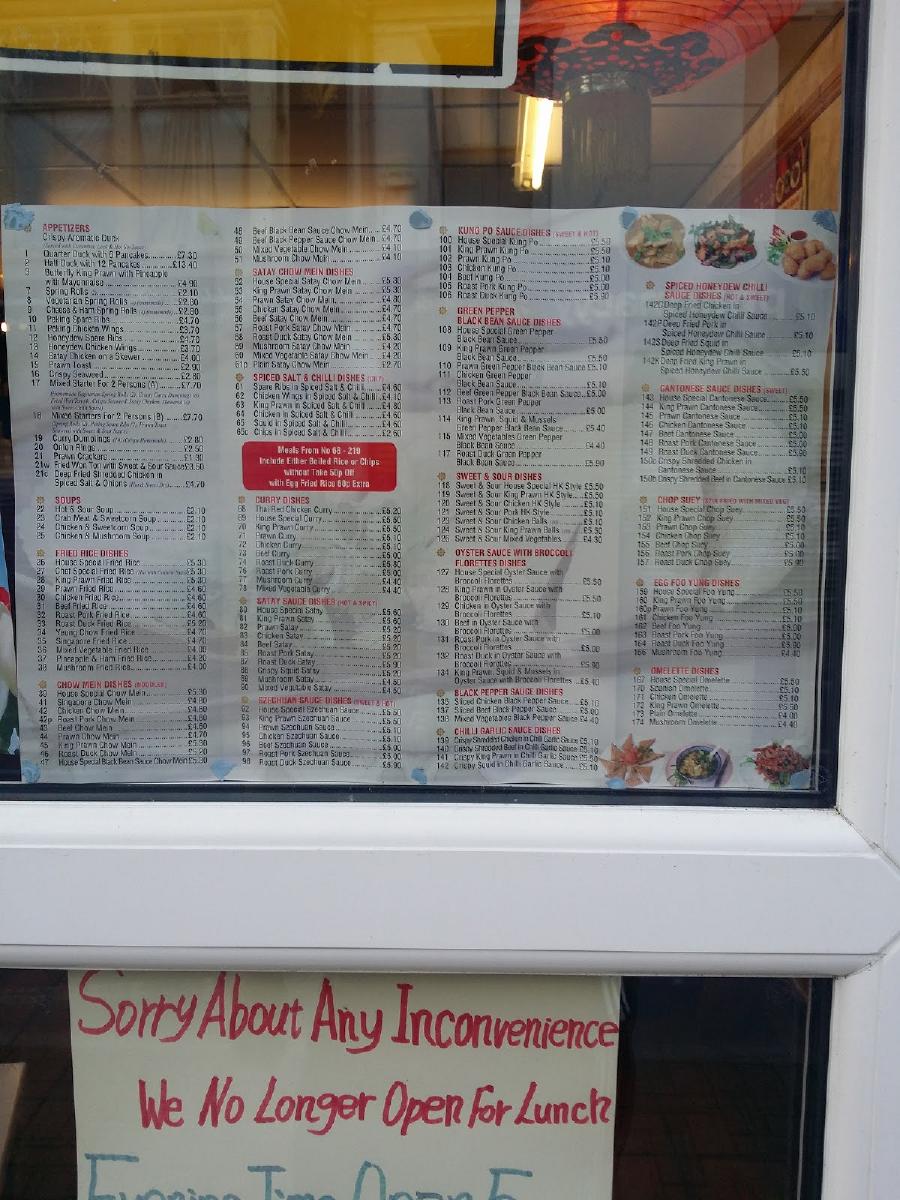 APPETIZERS
Crispy Aromatic Duck
1 Quarter Duck with 6 Pancakes £7.30
Half Duck with 12 Pancakes £13.40
Butterfly King Prawn with Pineapple
with Mayonnaise £4.90
7 Spring Rolls £2.10
8 Vegetarian Spring Rolls
9 Cheese & Ham Spring Rolls
Peking Spare Ribs
11 Peking Chicken Wings £3.70
12 Honeydew Spare Ribs
13 Honeydew Chicken Wings
14 Satay Chicken on a Skewer
15 Prawn Toast
16 Crispy Seaweed
17 Mixed Starter For 2 Persons (A) £7.70
18 Mixed Starters For 2 Persons (B) £7.70
19 Curry Dumplings £2.80
20 Onion Rings
21 Prawn Crackers
Fried Won Ton with Sweet & Sour Sauce £3.50
Deep Fried Shredded Chicken in
Spiced Salt & Onions £4.70
SOUPS
22 Hot & Sour Soup £2.10
23 Crab Meat & Sweetcorn Soup £2.10
24 Chicken & Sweetcorn Soup £2.10
25 Chicken & Mushroom Soup £2.10
FRIED RICE DISHES
26 House Special Fried Rice £5.30
27 Chef Special Fried Rice £5.30
28 King Prawn Fried Rice £5.30
29 Prawn Fried Rice £4.60
30 Chicken Fried Rice £4.60
31 Beef Fried Rice £4.60
32 Roast Pork Fried Rice £4.60
33 Roast Duck Fried Rice £5.20
34 Yeung Chow Fried Rice £4.70
35 Singapore Fried Rice
36 Mixed Vegetable Fried Rice
37 Pineapple & Ham Fried Rice
38 Mushroom Fried Rice
CHOW MEIN DISHES (NOODLES)
39 House Special Chow Mein £5.30
41 Singapore Chow Mein
42 Chicken Chow Mein
42p Roast Pork Chow Mein
43 Beef Chow Mein
44 Prawn Chow Mein
45 King Prawn Chow Mein
46 Roast Duck Chow Mein £5.20
47 House Special Black Bean Sauce Chow Mein £5.30
48 Beef Black Bean Sauce Chow Mein £4.70
49 Beef Black Pepper Sauce Chow Mein £4.70
50 Mixed Vegetable Chow Mein
51 Mushroom Chow Mein £4.10
SATAY CHOW MEIN DISHES
52 House Special Satay Chow Mein £5.30
53 King Prawn Satay Chow Mein £5.30
54 Prawn Satay Chow Mein
55 Chicken Satay Chow Mein
56 Beef Satay Chow Mein
57 Roast Pork Satay Chow Mein
58 Roast Duck Satay Chow Mein
59 Mushroom Satay Chow Mein £4.20
60 Mixed Vegetable Satay Chow Mein £4.20
Plain Satay Chow Mein £2.70
SPICED SALT & CHILLI DISHES
61 Spare Ribs in Spiced Salt & Chilli £4.60
62 Chicken Wings in Spiced Salt & Chilli £4.10
63 King Prawn in Spiced Salt & Chilli
64 Chicken in Spiced Salt & Chilli
65 Squid in Spiced Salt & Chilli
Chips in Spiced Salt & Chilli
Meals From No 68 - 219
Include Either Boiled Rice or Chips
without Take 50p Off
with Egg Fried Rice 60p Extra
CURRY DISHES
68 Thai Red Chicken Curry £5.20
69 House Special Curry
70 King Prawn Curry
71 Prawn Curry
72 Chicken Curry
73 Beef Curry
74 Roast Duck Curry
76 Roast Pork Curry
77 Mushroom Curry
78 Mixed Vegetable Curry
SATAY SAUCE DISHES (HOT & SPICY)
80 House Special Satay
81 King Prawn Satay
82 Prawn Satay
83 Chicken Satay
84 Beef Satay
85 Roast Pork Satay
87 Roast Duck Satay
Crispy Squid Satay
Mushroom Satay
90 Mixed Vegetable Satay
SZECHUAN SAUCE DISHES (SWEET & HOT)
92 House Special Szechuan Sauce
93 King Prawn Szechuan Sauce
94 Prawn Szechuan Sauce
95 Chicken Szechuan Sauce
96 Beef Szechuan Sauce
97 Roast Pork Szechuan Sauce
98 Roast Duck Szechuan Sauce
KUNG PO SAUCE DISHES (SWEET & HOT)
100 House Special Kung Po £5.50
101 King Prawn Kung Po £5.50
102 Prawn Kung Po £5.10
103 Chicken Kung Po £5.10
104 Beef Kung Po
105 Roast Pork Kung Po
106 Roast Duck Kung Po £5.90
GREEN PEPPER
BLACK BEAN SAUCE DISHES
108 House Special Green Pepper
Black Bean Sauce
109 King Prawn Green Pepper
Black Bean Sauce
110 Prawn Green Pepper Black Bean Sauce £5.10
111 Chicken Green Pepper
Black Bean Sauce £5.10
112 Beef Green Pepper Black Bean Sauce £5.00
113 Roast Pork Green Pepper
Black Bean Sauce £5.00
114 King Prawn, Squid & Mussels
Green Pepper Black Bean Sauce £5.40
115 Mixed Vegetables Green Pepper
Black Bean Sauce £4.40
117 Roast Duck Green Pepper
Black Bean Sauce £5.90
SWEET & SOUR DISHES
118 Sweet & Sour House Special HK Style £5.50
119 Sweet & Sour King Prawn HK Style £5.50
120 Sweet & Sour Chicken HK Style £5.10
121 Sweet & Sour Pork HK Style £5.10
123 Sweet & Sour Chicken Balls £5.10
124 Sweet & Sour King Prawn Balls
125 Sweet & Sour Mixed Vegetables £4.30
OYSTER SAUCE WITH BROCCOLI
FLORETTES DISHES
127 House Special Oyster Sauce with
Broccoli Florettes £5.50
128 King Prawn in Oyster Sauce with
Broccoli Florettes £5.50
129 Chicken in Oyster Sauce with
Broccoli Florettes £5.10
130 Beef in Oyster Sauce with
Broccoli Florettes £5.00
131 Roast Pork in Oyster Sauce with
Broccoli Florettes £5.00
132 Roast Duck in Oyster Sauce with
Broccoli Florettes £5.90
134 King Prawn, Squid & Mussels in
Oyster Sauce with Broccoli Florettes £5.40
BLACK PEPPER SAUCE DISHES
135 Sliced Chicken Black Pepper Sauce £5.10
137 Sliced Beef Black Pepper Sauce £5.00
138 Mixed Vegetables Black Pepper Sauce £4.40
CHILLI GARLIC SAUCE DISHES
139 Crispy Shredded Chicken in Chilli Garlic Sauce £5.10
140 Crispy Shredded Beef in Chilli Garlic Sauce £5.10
141 Crispy King Prawn in Chilli Garlic Sauce
142 Crispy Squid in Chilli Garlic Sauce £5.10
SPICED HONEYDEW CHILLI
SAUCE DISHES (HOT & SWEET)
142C Deep Fried Chicken in
Spiced Honeydew Chilli Sauce £5.10
142P Deep Fried Pork in
Spiced Honeydew Chilli Sauce £5.10
142S Deep Fried Squid in
Spiced Honeydew Chilli Sauce £5.10
142K Deep Fried King Prawn in
Spiced Honeydew Chilli Sauce £5.50
CANTONESE SAUCE DISHES (SWEET)
143 House Special Cantonese Sauce £5.50
144 King Prawn Cantonese Sauce £5.50
145 Prawn Cantonese Sauce £5.10
146 Chicken Cantonese Sauce £5.10
147 Beef Cantonese Sauce £5.00
148 Roast Pork Cantonese Sauce £5.00
149 Roast Duck Cantonese Sauce £5.90
150c Crispy Shredded Chicken in
Cantonese Sauce £5.10
150b Crispy Shredded Beef in Cantonese Sauce £5.10
CHOP SUEY
151 House Special Chop Suey £5.50
152 King Prawn Chop Suey £5.50
153 Prawn Chop Suey £5.10
154 Chicken Chop Suey £5.10
155 Beef Chop Suey £5.00
156 Roast Pork Chop Suey £5.00
157 Roast Duck Chop Suey £5.90
EGG FOO YUNG DISHES
159 House Special Foo Yung £5.50
160 King Prawn Foo Yung £5.50
160p Prawn Foo Yung £5.10
161 Chicken Foo Yung £5.10
162 Beef Foo Yung £5.00
163 Roast Pork Foo Yung £5.00
164 Roast Duck Foo Yung
166 Mushroom Foo Yung £4.40
OMELETTE DISHES
167 House Special Omelette £5.50
170 Spanish Omelette £5.10
171 Chicken Omelette £5.10
172 King Prawn Omelette £5.50
173 Plain Omelette £4.00
174 Mushroom Omelette £4.40
Sorry About Any Inconvenience
We No Longer Open For Lunch
Evening Time Open 5